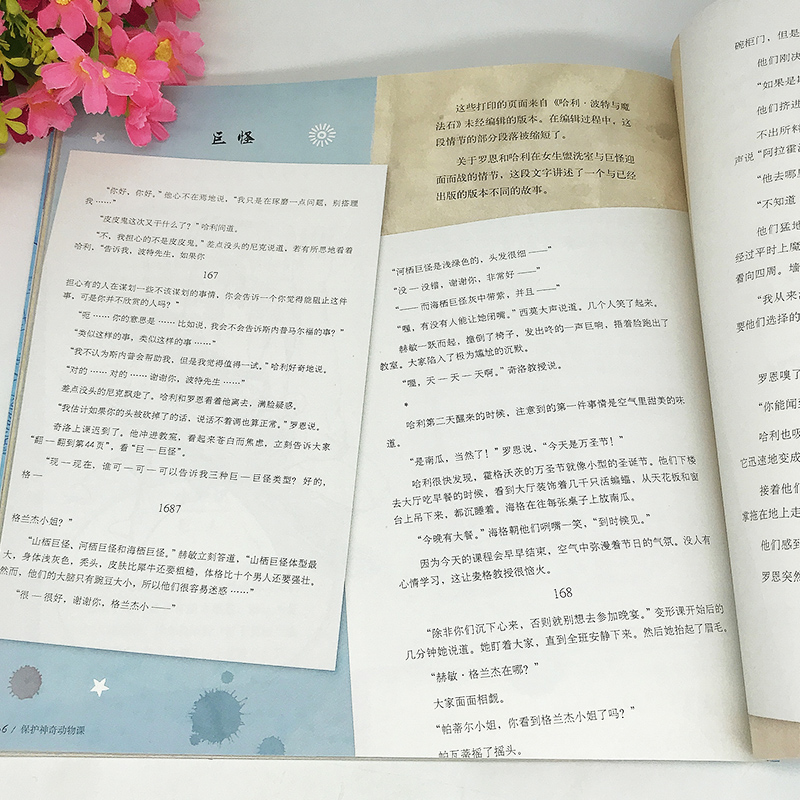 巨怪
“你好，你好。”他心不在焉地说，“我只是在琢磨一点问题，别搭理
我……”
“皮皮鬼这次又干什么了？”哈利问道。
“不，我担心的不是皮皮鬼。”差点没头的尼克说道，若有所思地看着
哈利，“告诉我，波特先生，如果你
167
担心有的人在谋划一些不该谋划的事情，你会告诉一个你觉得能阻止这件
事，可是你并不欣赏的人吗？”
“呃……你的意思是……比如说，我会不会告诉斯内普马尔福的事？”
“类似这样的事，类似这样的事……”
“我不认为斯内普会帮助我，但是我觉得值得一试。”哈利好奇地说。
“对的……对的……谢谢你，波特先生……”
差点没头的尼克飘走了。哈利和罗恩看着他离去，满脸疑惑。
“我估计如果你的头被砍掉了的话，说话不着调也算正常。”罗恩说。
奇洛上课迟到了。他冲进教室，看起来苍白而焦虑，立刻告诉大家
“翻一翻到第44页”，看“巨一巨怪”。
“现一现在，谁可一可一可以告诉我三种巨一巨怪类型？好的，
格一
1687
格兰杰小姐？”
“山栖巨怪、河栖巨怪和海栖巨怪。”赫敏立刻答道，“山栖巨怪体型最
大，身体浅灰色，秃头，皮肤比犀牛还要粗糙，体格比十个男人还要强壮。
然而，他们的大脑只有豌豆大小，所以他们很容易迷惑……”
“很一很好，谢谢你，格兰杰小——”
6 / 保护神奇动物课
这些打印的页面来自《哈利·波特与魔
法石》未经编辑的版本。在编辑过程中，这
段情节的部分段落被缩短了。
关于罗恩和哈利在女生盥洗室与巨怪迎
面而战的情节，这段文字讲述了一个与已经
出版的版本不同的故事。
“河栖巨怪是浅绿色的，头发很细——”
“没一没错，谢谢你，非常好——”
“——而海栖巨怪灰中带紫，并且——”
“嘿，有没有人能让她闭嘴。”西莫大声说道。几个人笑了起来。
赫敏一跃而起，撞倒了椅子，发出咚的一声巨响，捂着脸跑出了
教室。大家陷入了极为尴尬的沉默。
“嘿，天一天一天啊。”奇洛教授说。
*
哈利第二天醒来的时候，注意到的第一件事情是空气里甜美的味
道。
“是南瓜，当然了！”罗恩说，“今天是万圣节！”
哈利很快发现，霍格沃茨的万圣节就像小型的圣诞节。他们下楼
去大厅吃早餐的时候，看到大厅装饰着几千只活蝙蝠，从天花板和窗
台上吊下来，都沉睡着。海格在往每张桌子上放南瓜。
“今晚有大餐。”海格朝他们咧嘴一笑，“到时候见。”
因为今天的课程会早早结束，空气中弥漫着节日的气氛。没人有
心情学习，这让麦格教授很恼火。
168
“除非你们沉下心来，否则就别想去参加晚宴。”变形课开始后的
几分钟她说道。她盯着大家，直到全班安静下来。然后她抬起了眉毛。
“赫敏·格兰杰在哪？”
大家面面相觑。
“帕蒂尔小姐，你看到格兰杰小姐了吗？”
帕瓦蒂摇了摇头。
碗柜门，但是
他们刚决
“如果是
他们挤进
不出所料
声说“阿拉霍
“他去哪里
“不知道
他们猛地
经过平时上魔
看向四周。墙
“我从来
要他们选择的
罗恩嗅了
“你能闻
哈利也吸
它迅速地变成
接着他们
掌拖在地上走
他们感到
罗恩突然